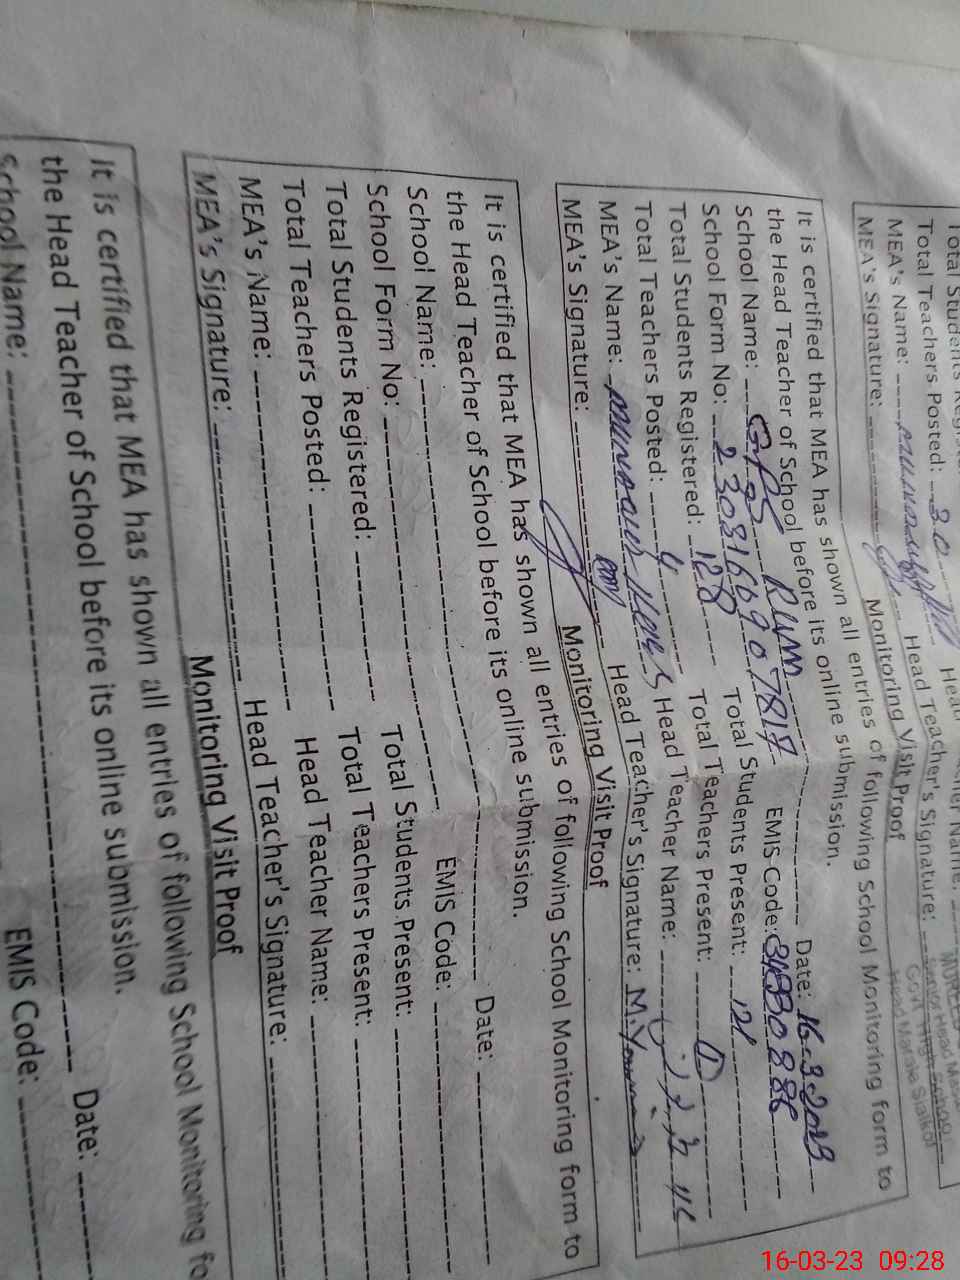 Total Students
Total Teachers Posted: 30
MEA's Name: Head
MEA's Signature: Head Teacher's Signature:
Senior Head
Govt High School
Head Marala Sialkot
Monitoring Visit Proof
It is certified that MEA has shown all entries of following School Monitoring form to
the Head Teacher of School before its online submission.
School Name: GPS Date: 16-3-2023
School Form No: EMIS Code: 34330886
Total Students Registered: 128 Total Students Present: 121
Total Teachers Posted: 4 Total Teachers Present:
MEA's Name: Head Teacher Name:
MEA's Signature: Head Teacher's Signature: M.
Monitoring Visit Proof
It is certified that MEA has shown all entries of following School Monitoring form to
the Head Teacher of School before its online submission.
School Name: Date:
School Form No: EMIS Code:
Total Students Registered: Total Students Present:
Total Teachers Posted: Total Teachers Present:
MEA's Name: Head Teacher Name:
MEA's Signature: Head Teacher's Signature:
Monitoring Visit Proof
It is certified that MEA has shown all entries of following School Monitoring fo
the Head Teacher of School before its online submission.
School Name: Date:
EMIS Code:
16-03-23 09:28